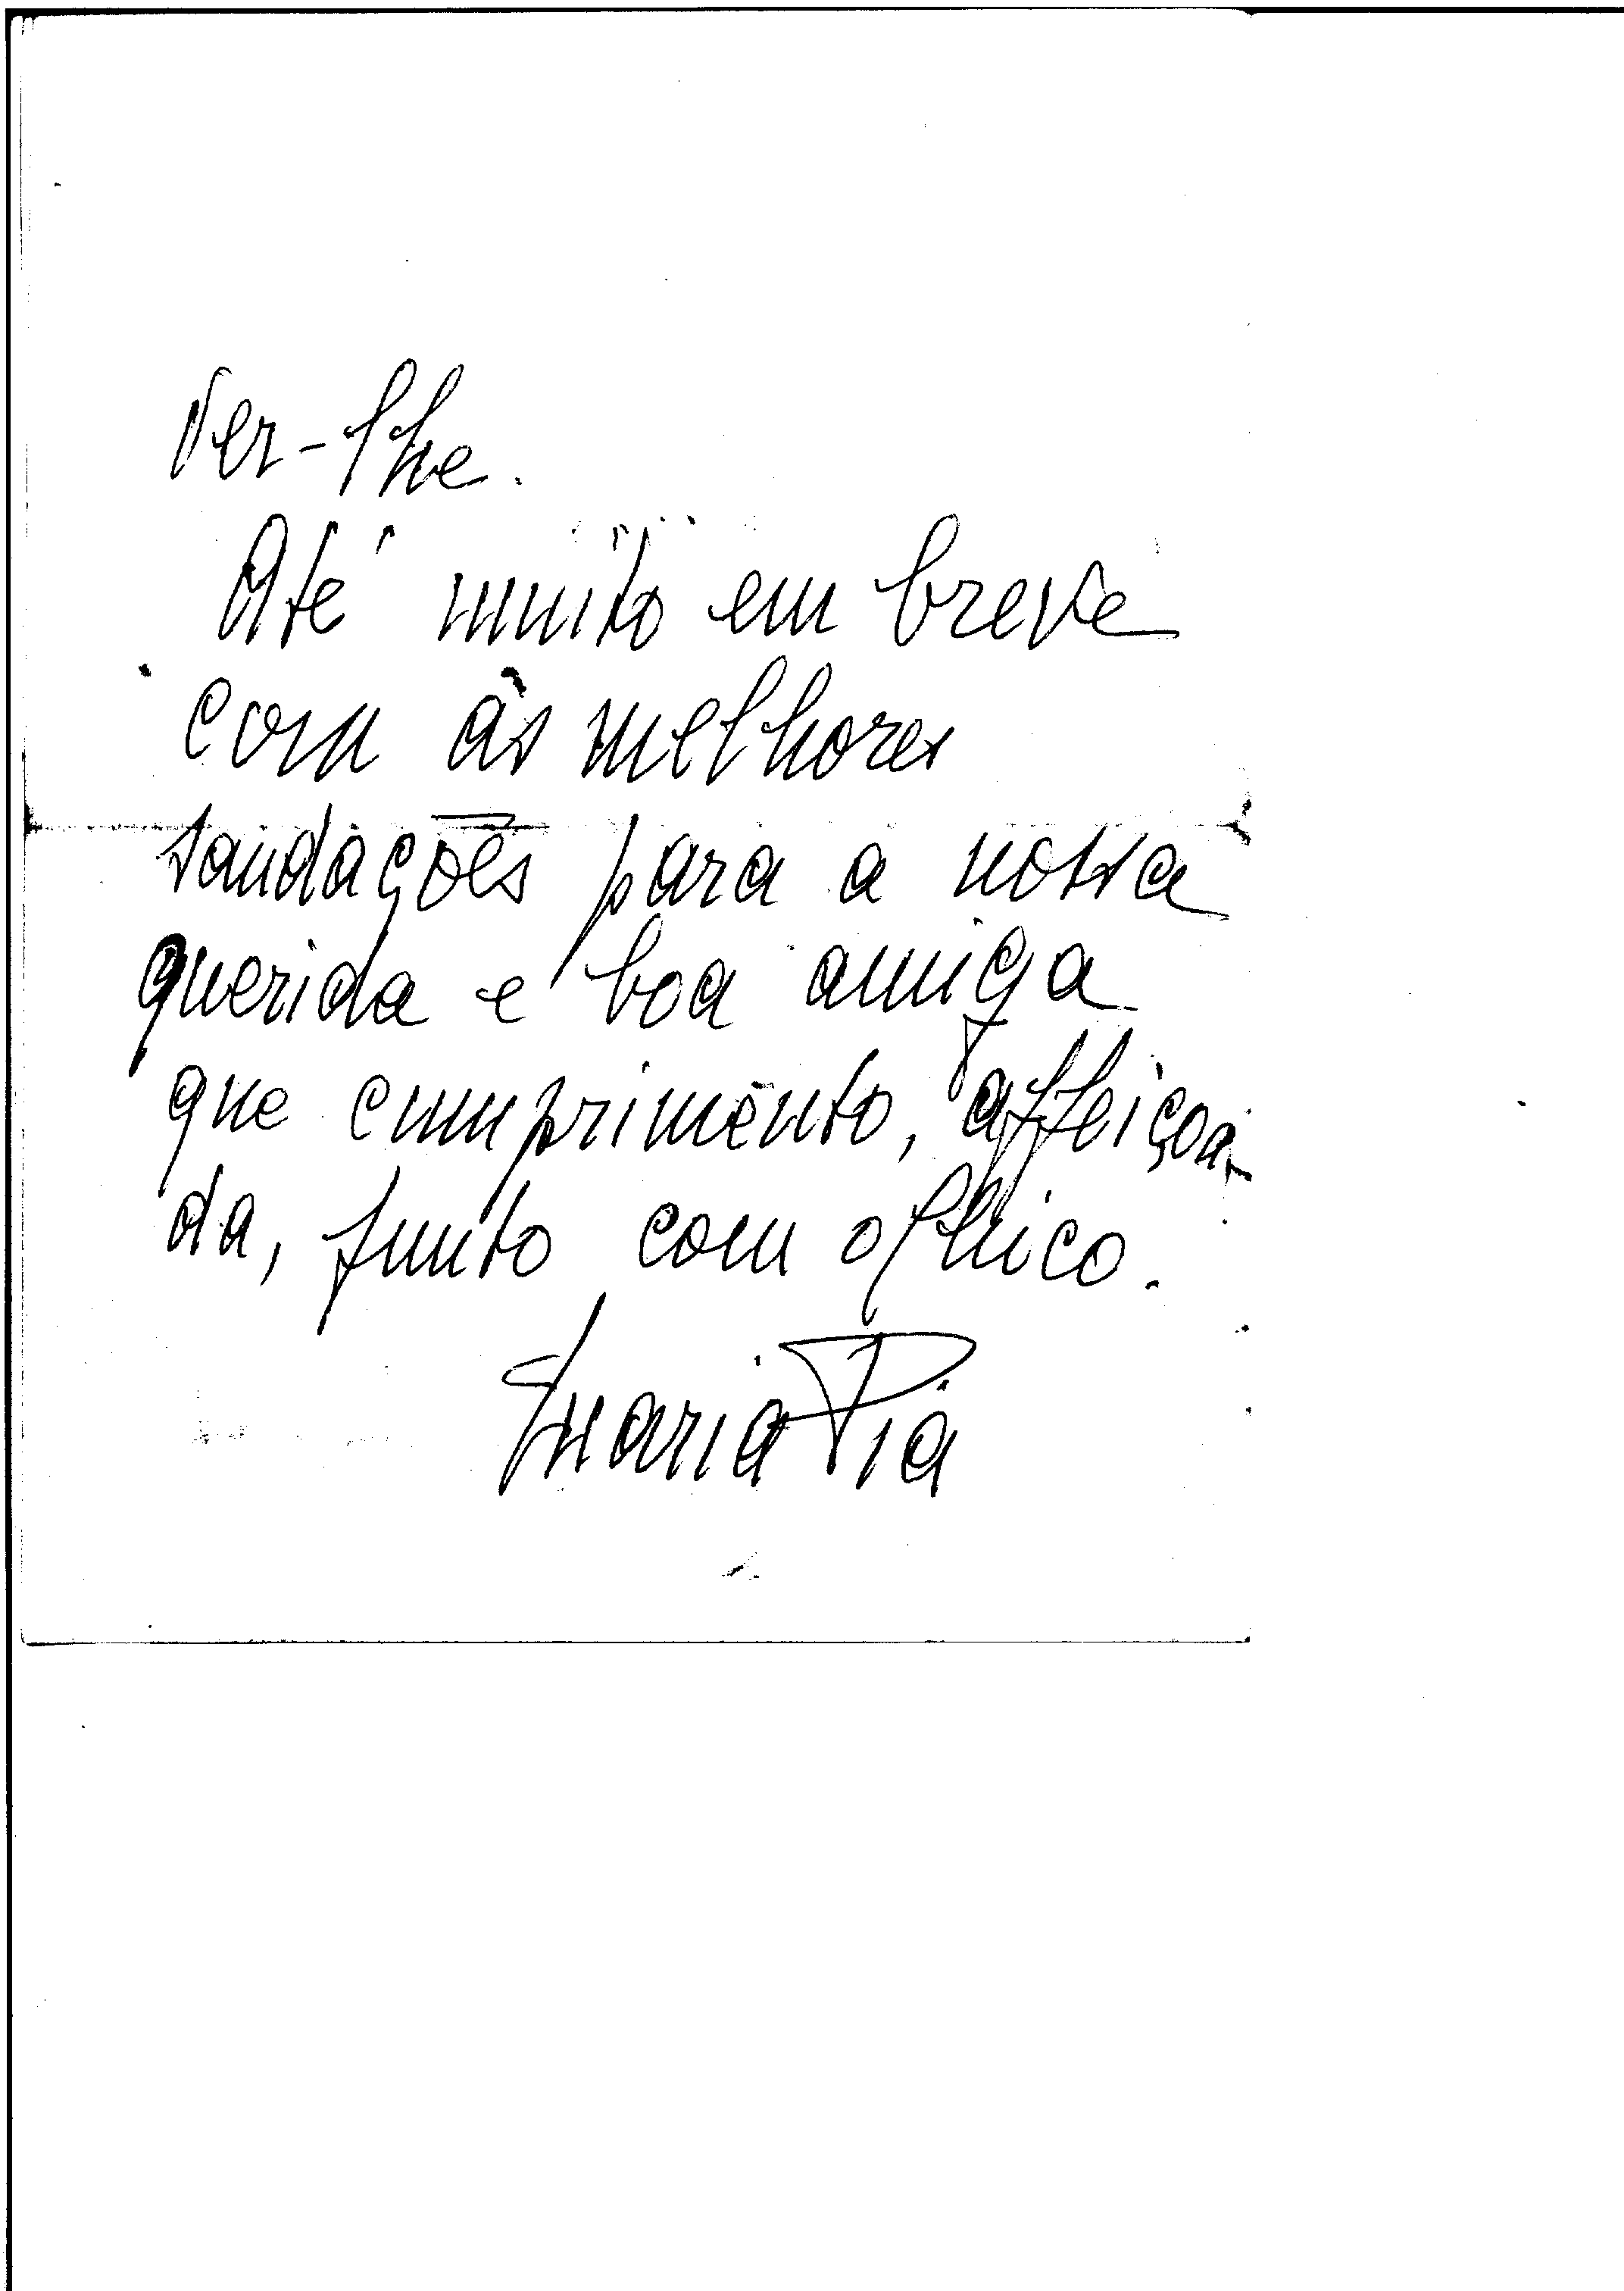 ver-lhe.
Até muito em breve
com às melhores
saudações para a nossa
querida e boa amiga
que cumprimento, affeiçoa-
da, junto com o
Maria Pia